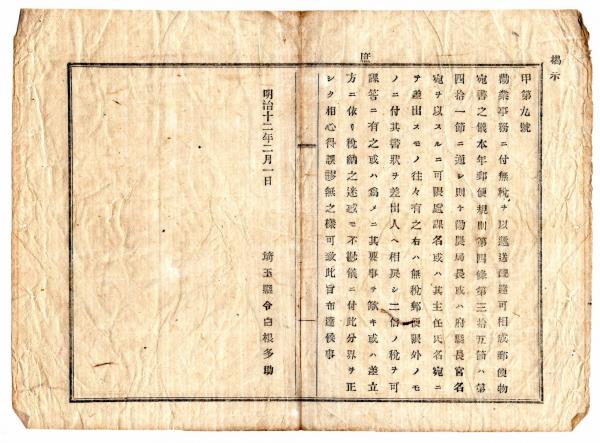 掲示
庶
甲第九號
勸業事務ニ付無税ヲ以遞送配達可相成郵便物
宛書之儀本年郵便規則第四條第三拾五節ハ第
四拾一節ニ遵シ則チ勸農局長或ハ府縣長官名
宛ヲ以スルニ可限處課名或ハ其主任氏名宛ニ
テ差出スモノ往々有之右ハ無税郵便限外ノモ
ノニ付其書狀ヲ差出人ヘ相戻シ二倍ノ税ヲ可
課筈ニ有之或ハ爲メニ其要事ヲ欠キ或ハ差立
方ニ依リ税納之迷惑モ不尠儀ニ付此分界ヲ正
シク相心得誤謬無之樣可致此旨布達候事
明治十二年二月一日
埼玉縣令白根多助